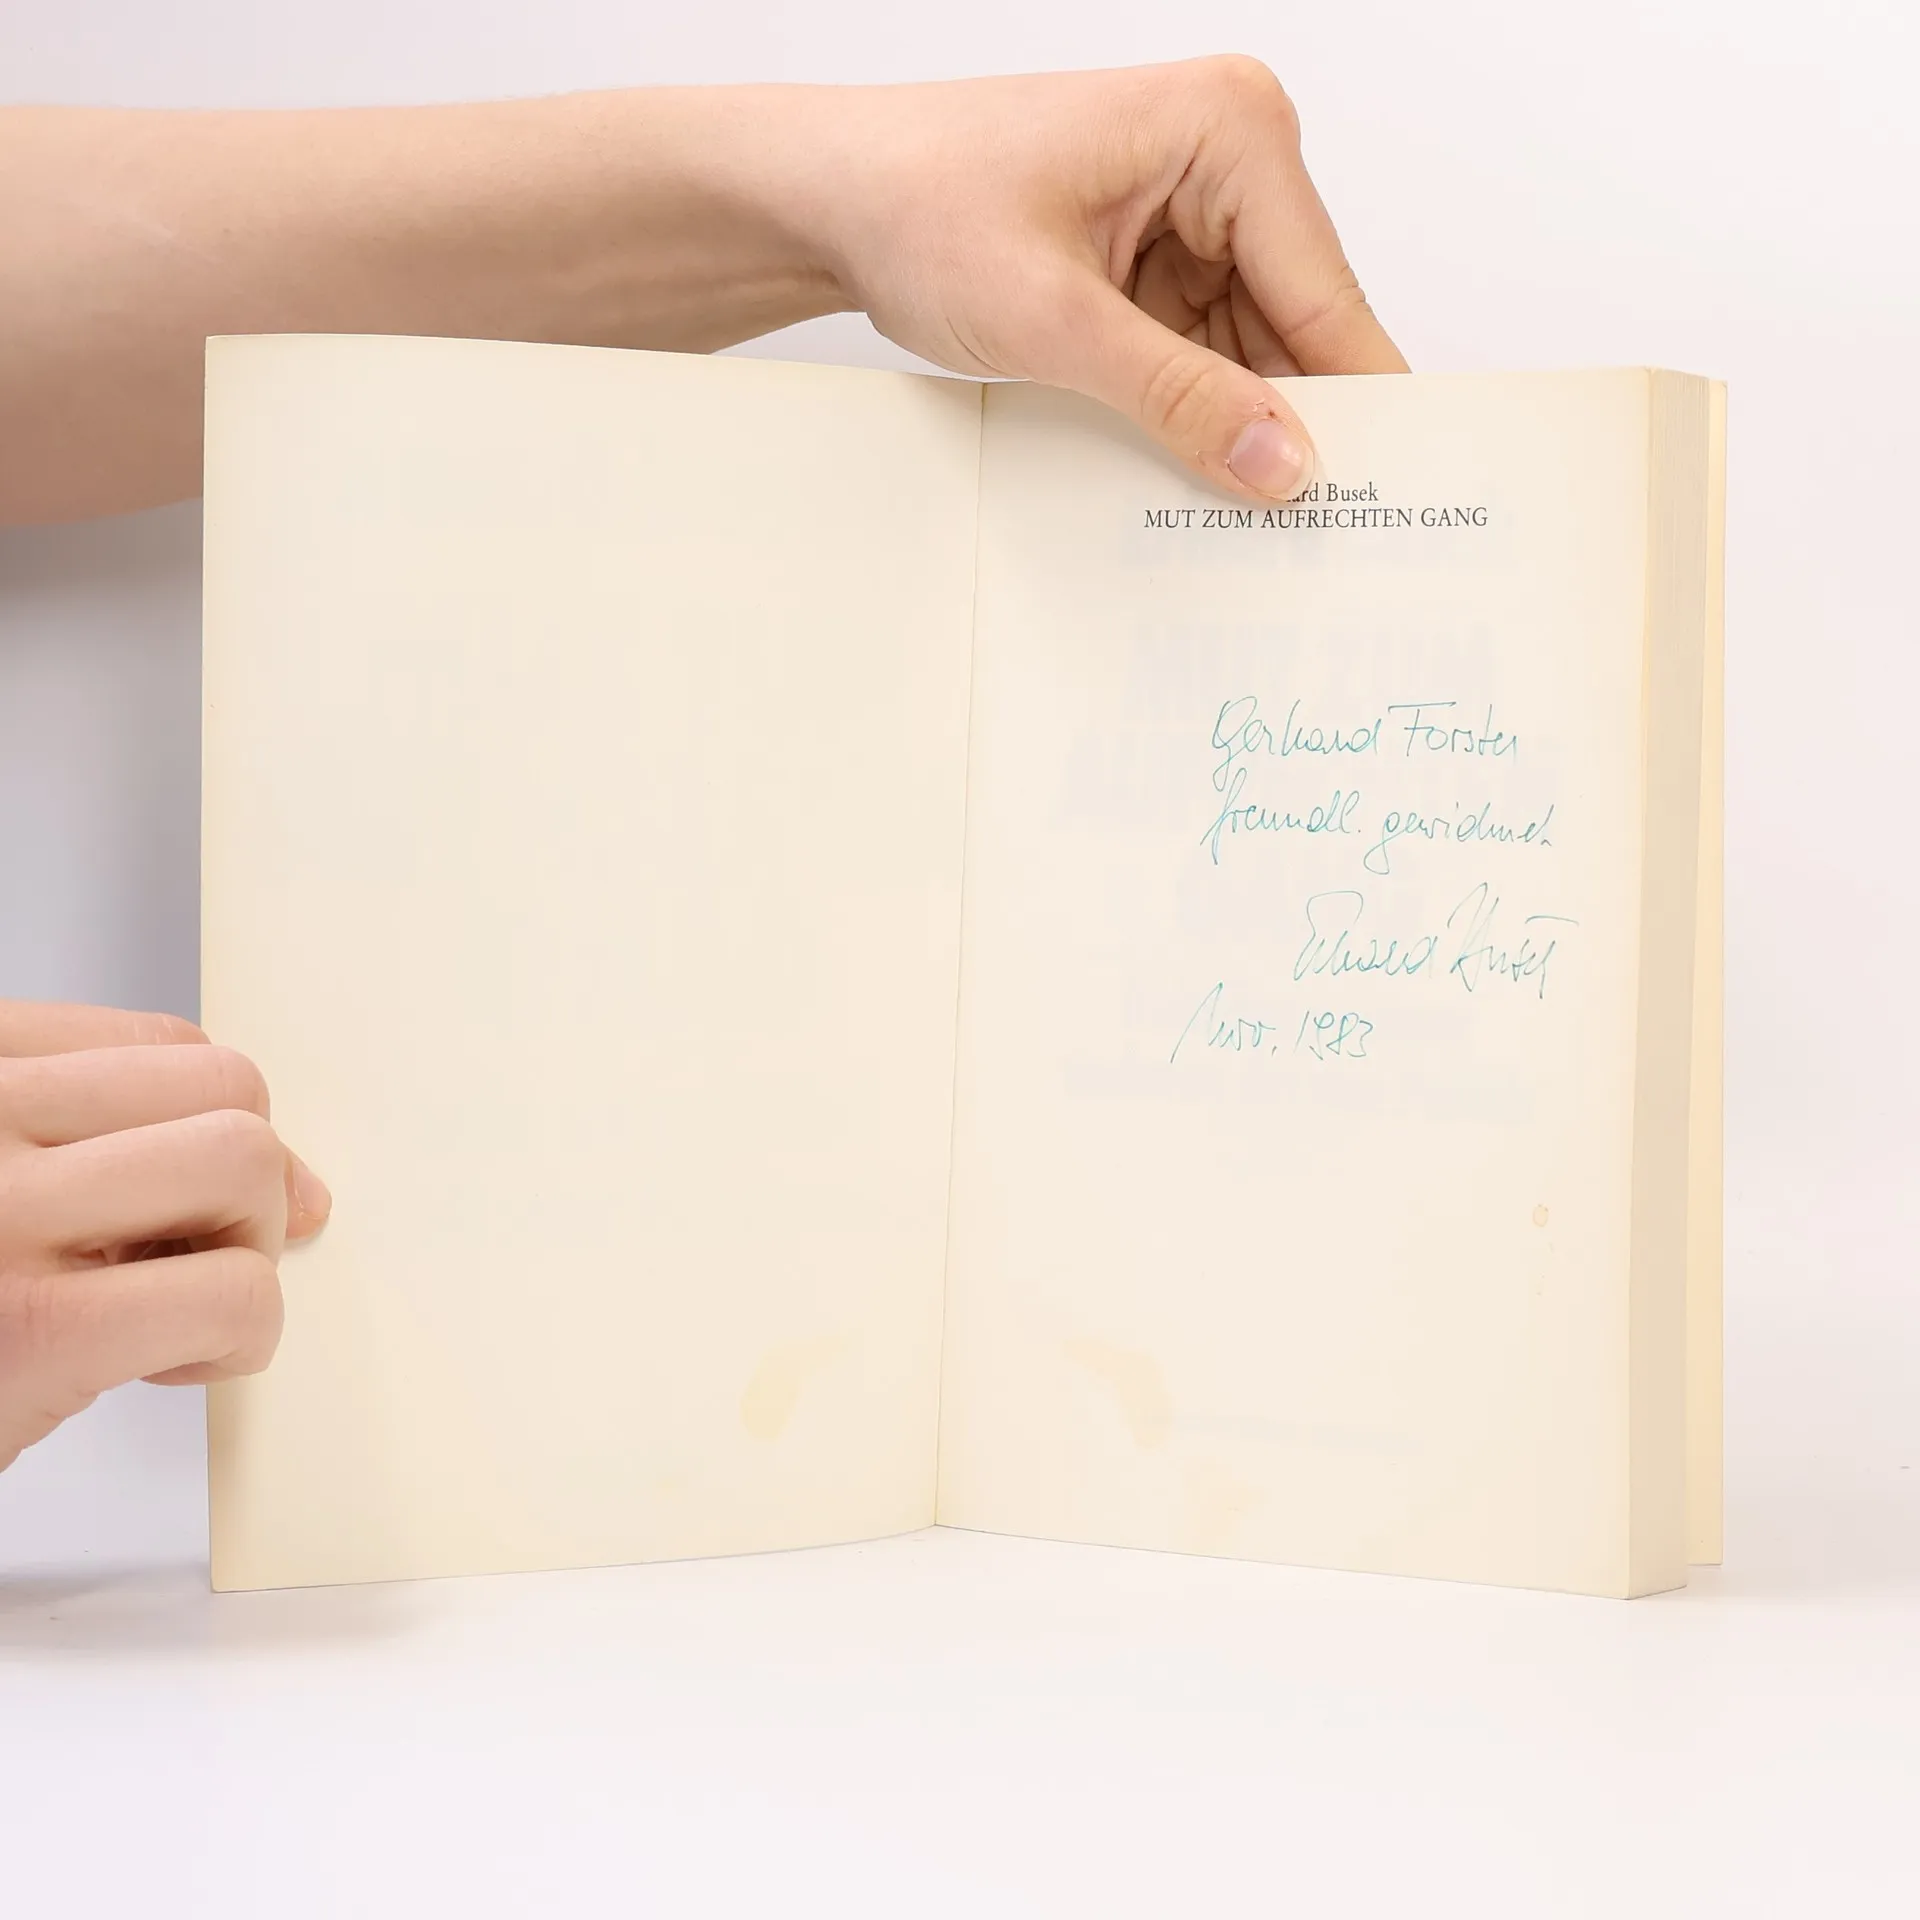 ard Busek
MUT ZUM AUFRECHTEN GANG
Gerhard Forster
freundl. gewidmet
Erhard Busek
Nov. 1983